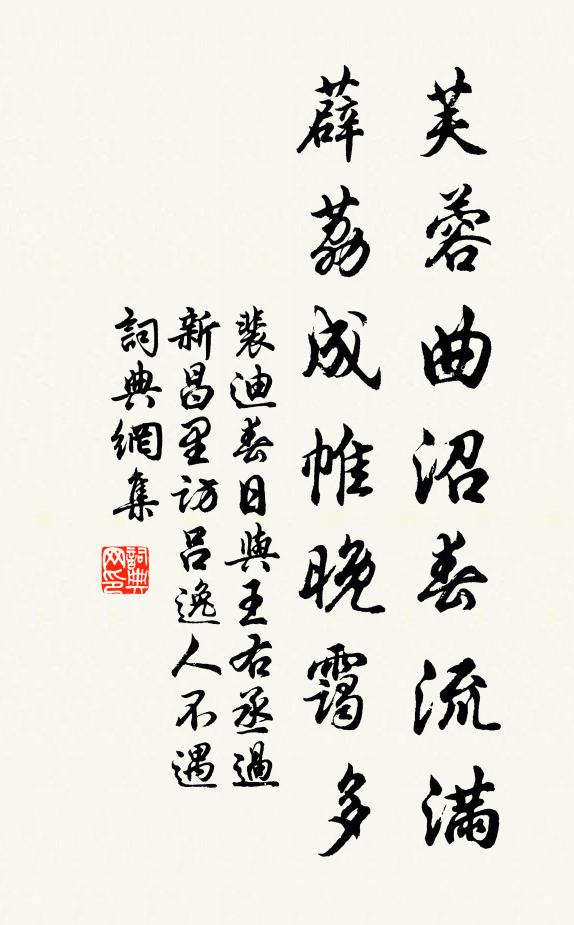 芙蓉曲沼春流滿
薜荔成帷晚靄多
裴迪春日與王右丞過
新昌里訪呂逸人不遇
詞典網集
詞典網印